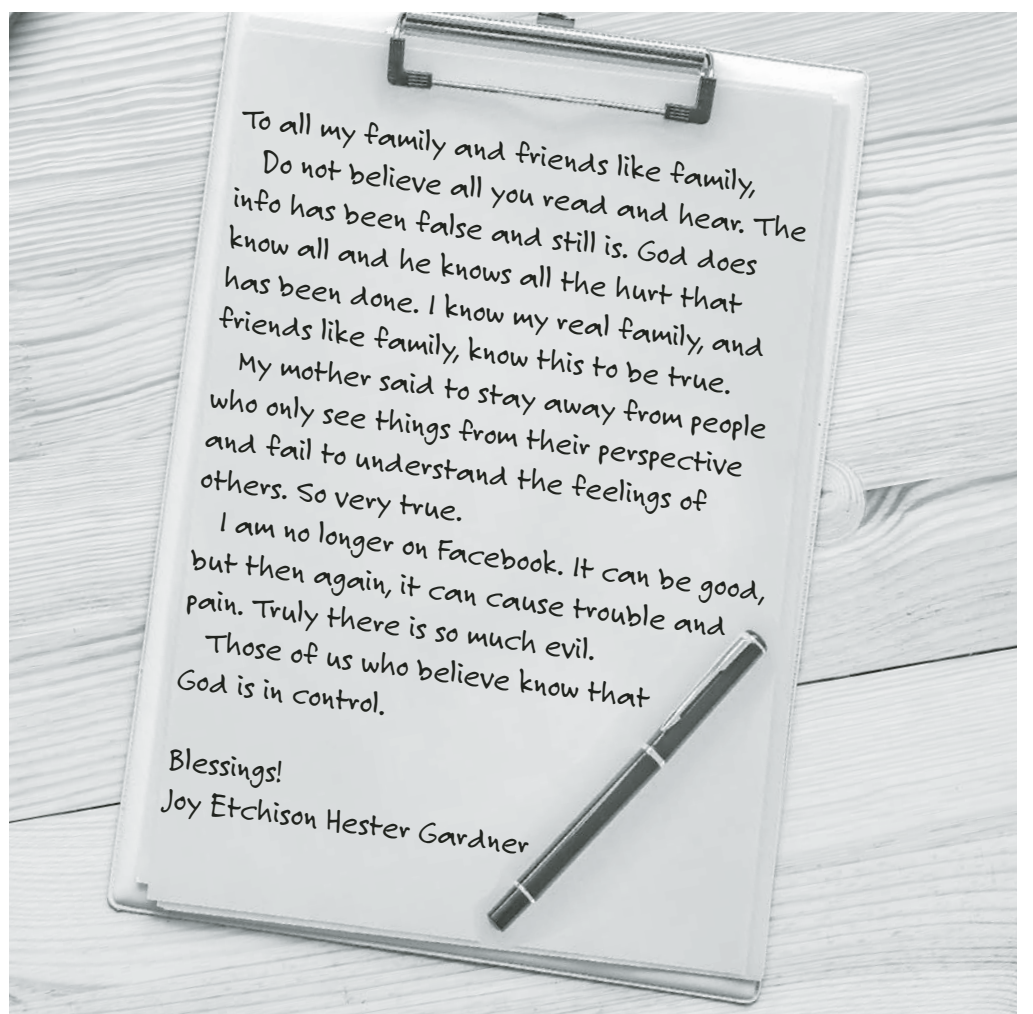 To all my family and friends like family,
Do not believe all you read and hear. The
info has been false and still is. God does
know all and he knows all the hurt that
has been done. I know my real family, and
friends like family, know this to be true.
My mother said to stay away from people
who only see things from their perspective
and fail to understand the feelings of
others. So very true.
I am no longer on Facebook. It can be good,
but then again, it can cause trouble and
pain. Truly there is so much evil.
Those of us who believe know that
God is in control.
Blessings!
Joy Etchison Hester Gardner